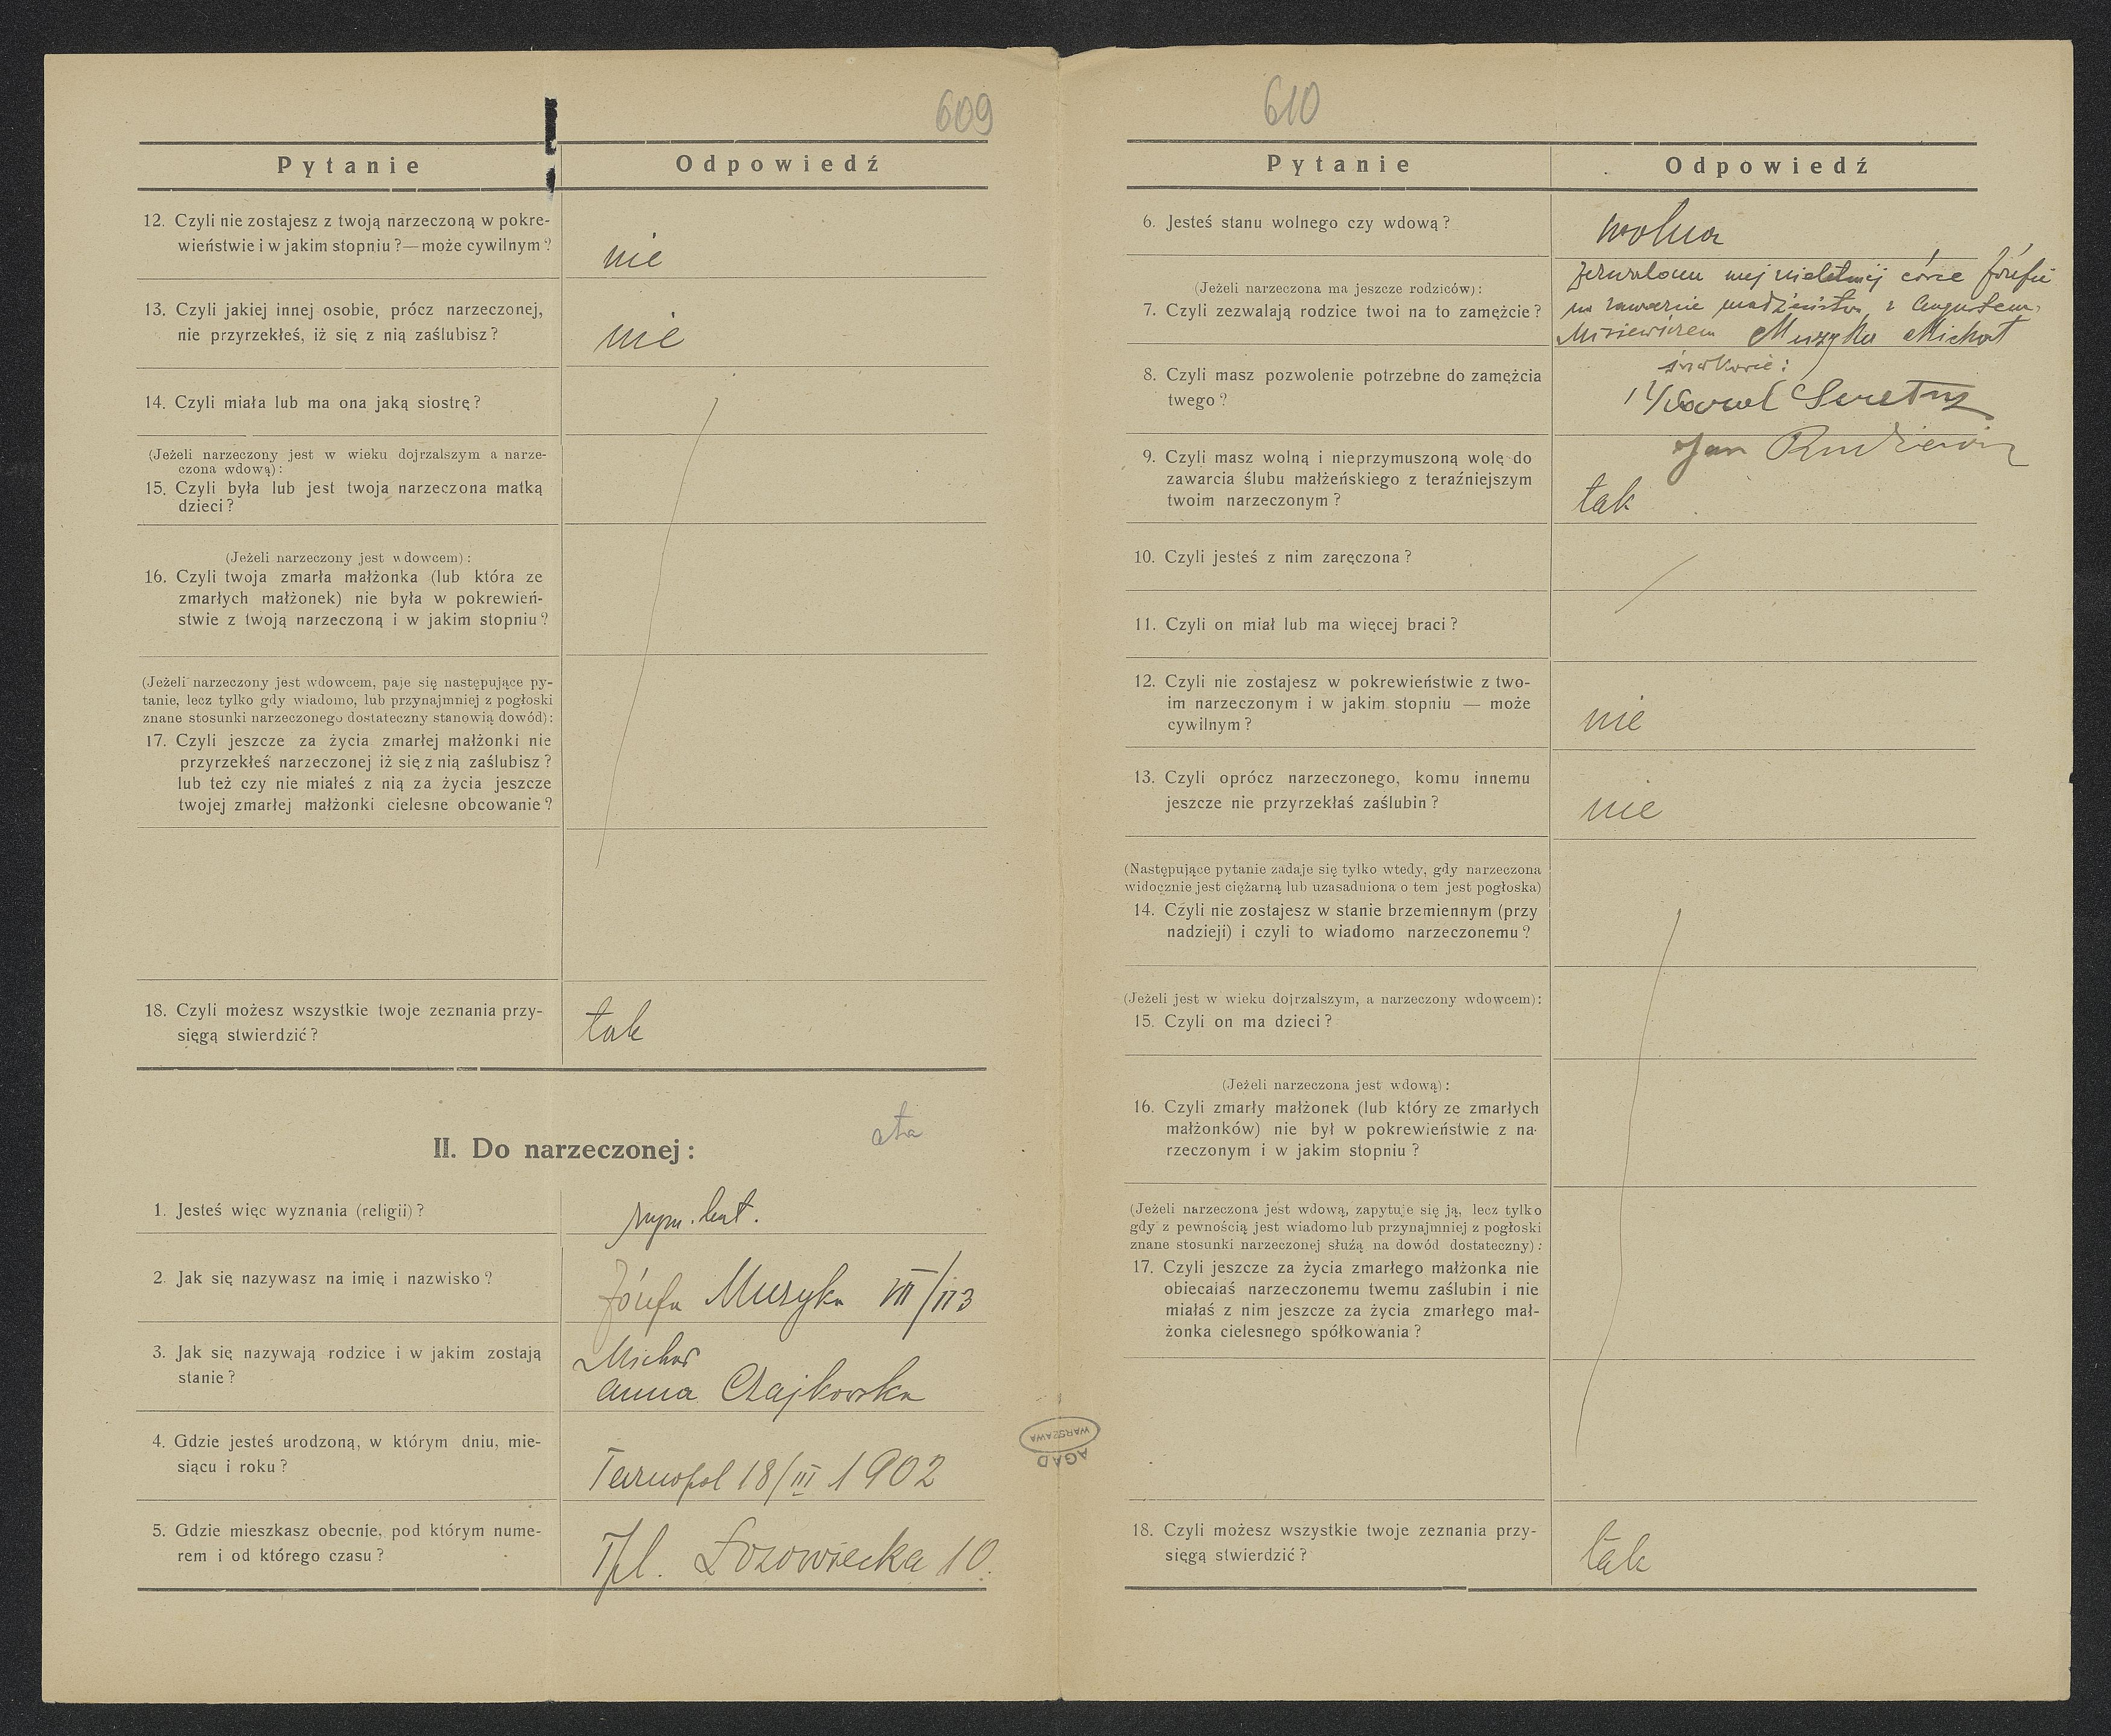 609
Pytanie
Odpowiedź
12. Czyli nie zostajesz z twoją narzeczoną w pokre-
wieństwie i w jakim stopniu?—może cywilnym?
nie
13. Czyli jakiej innej osobie, prócz narzeczonej,
nie przyrzekłeś, iż się z nią zaślubisz?
nie
14. Czyli miała lub ma ona jaką siostrę?
(Jeżeli narzeczony jest w wieku dojrzalszym a narze-
czona wdową):
15. Czyli była lub jest twoja narzeczona matką
dzieci?
(Jeżeli narzeczony jest wdowcem):
16. Czyli twoja zmarła małżonka (lub która ze
zmarłych małżonek) nie była w pokrewień-
stwie z twoją narzeczoną i w jakim stopniu?
(Jeżeli narzeczony jest wdowcem, paje się następujące py-
tanie, lecz tylko gdy wiadomo, lub przynajmniej z pogłoski
znane stosunki narzeczonego dostateczny stanowią dowód):
17. Czyli jeszcze za życia zmarłej małżonki nie
przyrzekłeś narzeczonej iż się z nią zaślubisz?
lub też czy nie miałeś z nią za życia jeszcze
twojej zmarłej małżonki cielesne obcowanie?
18. Czyli możesz wszystkie twoje zeznania przy-
sięgą stwierdzić?
tak
II. Do narzeczonej:
1. Jesteś więc wyznania (religii)?
rzym. kat.
2. Jak się nazywasz na imię i nazwisko?
Józefa Muzyka VII/113
3. Jak się nazywają rodzice i w jakim zostają
stanie?
Michał
Anna Czajkowska
4. Gdzie jesteś urodzoną, w którym dniu, mie-
siącu i roku?
Tarnopol 18/III 1902
5. Gdzie mieszkasz obecnie, pod którym nume-
rem i od którego czasu?
Tpl. Łozowiecka 10.
AGAD
WARSZAWA
610
Pytanie
Odpowiedź
6. Jesteś stanu wolnego czy wdową?
wolna
(Jeżeli narzeczona ma jeszcze rodziców):
7. Czyli zezwalają rodzice twoi na to zamężcie?
Zezwalam mej nieletniej córce Józefie
na zawarcie małżeństwa z Augustem
Misiewiczem Muzyka Michał
8. Czyli masz pozwolenie potrzebne do zamężcia
twego?
świadkowie:
Jan
9. Czyli masz wolną i nieprzymuszoną wolę do
zawarcia ślubu małżeńskiego z teraźniejszym
twoim narzeczonym?
tak
10. Czyli jesteś z nim zaręczona?
11. Czyli on miał lub ma więcej braci?
12. Czyli nie zostajesz w pokrewieństwie z two-
im narzeczonym i w jakim stopniu — może
cywilnym?
nie
13. Czyli oprócz narzeczonego, komu innemu
jeszcze nie przyrzekłaś zaślubin?
nie
(Następujące pytanie zadaje się tylko wtedy, gdy narzeczona
widocznie jest ciężarną lub uzasadniona o tem jest pogłoska)
14. Czyli nie zostajesz w stanie brzemiennym (przy
nadzieji) i czyli to wiadomo narzeczonemu?
(Jeżeli jest w wieku dojrzalszym, a narzeczony wdowcem):
15. Czyli on ma dzieci?
(Jeżeli narzeczona jest wdową):
16. Czyli zmarły małżonek (lub który ze zmarłych
małżonków) nie był w pokrewieństwie z na-
rzeczonym i w jakim stopniu?
(Jeżeli narzeczona jest wdową, zapytuje się ją, lecz tylko
gdy z pewnością jest wiadomo lub przynajmniej z pogłoski
znane stosunki narzeczonej służą na dowód dostateczny):
17. Czyli jeszcze za życia zmarłego małżonka nie
obiecałaś narzeczonemu twemu zaślubin i nie
miałaś z nim jeszcze za życia zmarłego mał-
żonka cielesnego spółkowania?
18. Czyli możesz wszystkie twoje zeznania przy-
sięgą stwierdzić?
tak